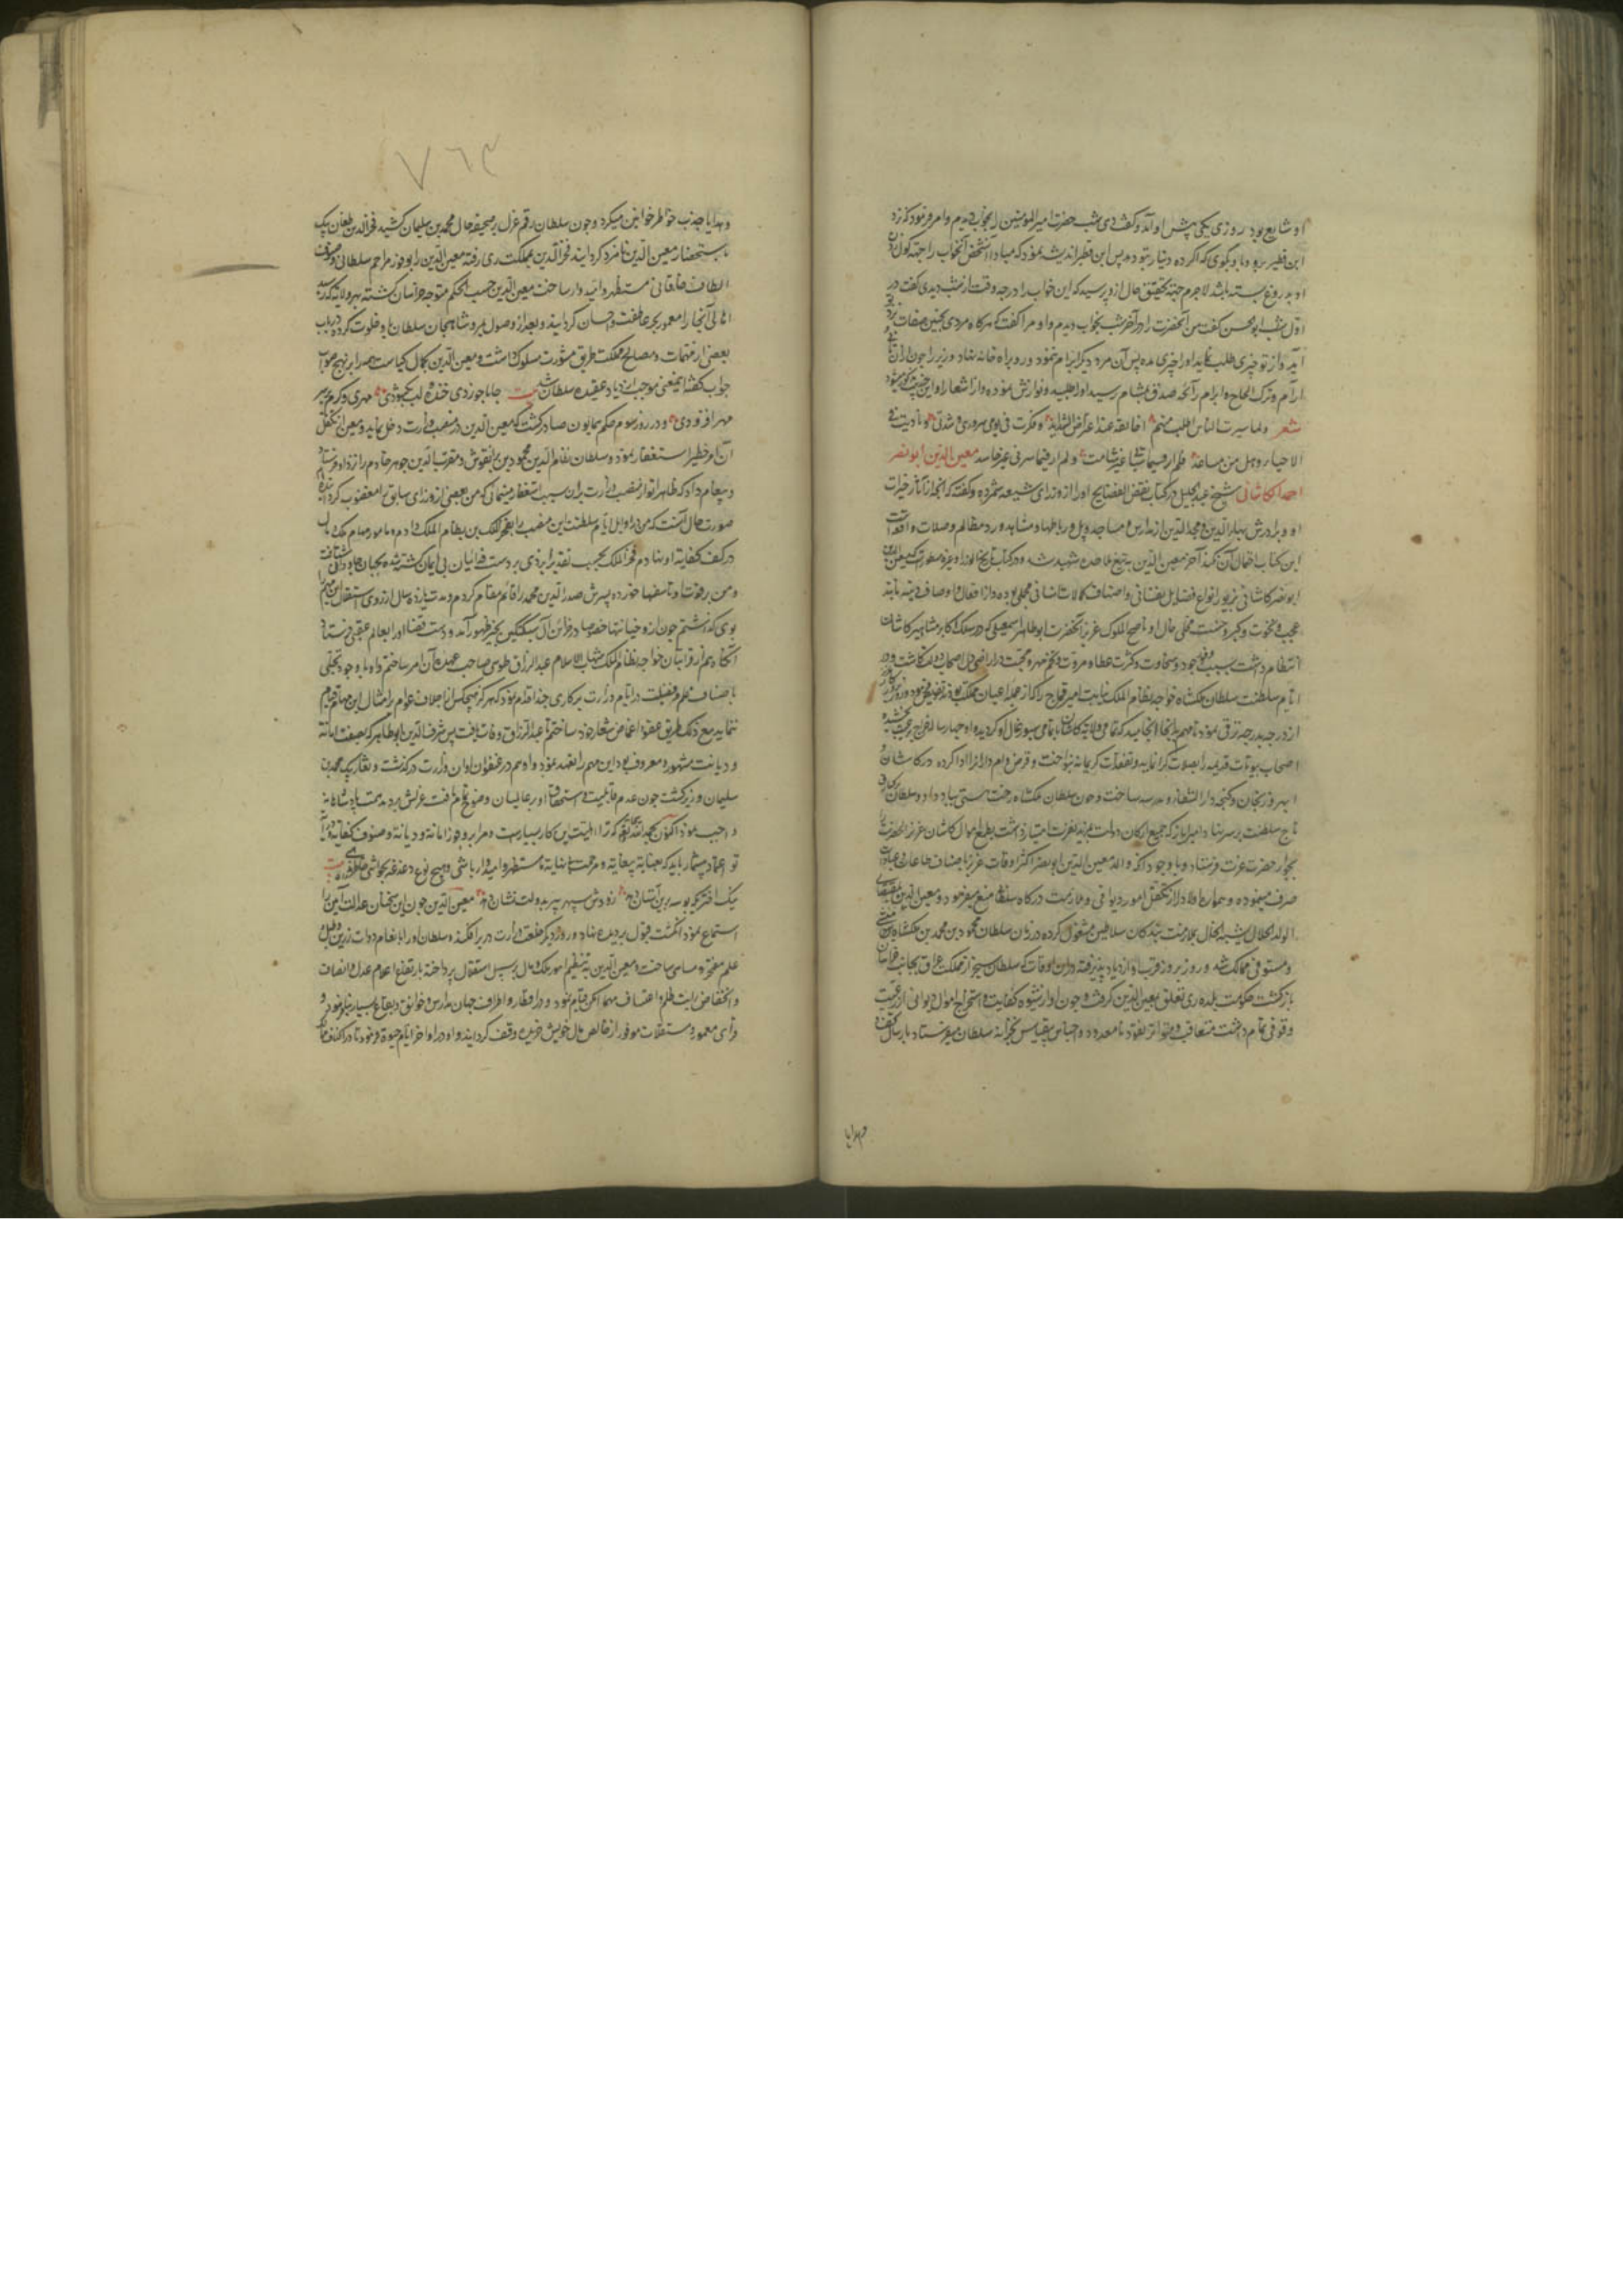 او شایع بود روزی یکی پیش او آمد و گفت دی شب حضرت امیر المومنین را بخواب دیدم و امر فرمود که نزد
ابن فطیر برو و با و بگوی که اگر ده دینار بتو دهد پس ابن فطیر اندیشه نمود که مبادا آن شخص آنخواب را جهة
او بدروغ بسته باشد لاجرم جهة تحقیق حال ازو پرسید که این خواب را در چه وقت از شب دیدی گفت در
اول شب ابو الحسن گفت من آنحضرت را در آخر شب بخواب دیدم و او مرا گفت که هرگاه مردی بچنین صفات
آید و از تو چیزی طلب نماید او را چیزی مده پس آن مرد دیگر ابرام ننمود و رو براه خانه نهاد و وزیر را چون از
آرام و ترک الحاح و ابرام رائحه صدق بمشام رسید او را طلبید و نوازش نموده و از اشعار او این
شعر ولما سیرت الناس اطلب منهم اخا ثقة عند اعتراض الشداید و فکرت فی یومی سروری و شدتی و نادیت فی
الاحیاء وهل من مساعد فلم ار فیما ساءنی غیر شامت ولم ار فیما سرنی غیر حاسد معین الدین ابو نصر
احمد الکاشانی شیخ عبد الجلیل در کتاب نقض الفضایح او را از وزرای شیعه شمرده و گفته که آنچه از آثار خیرات
او و برادرش بهاء الدین و مجد الدین از مدارس و مساجد و پل و رباطها و مشاهد و رد مظالم و صلات واقعست
این کتاب احتمال آن نکند آخر معین الدین بتیغ ملاحده شهید شد و در کتاب تاریخ الوزراء و غیره مسطور است که معین الدین
ابو نصر کاشانی بزیور انواع فضایل نفسانی و اصناف کمالات انسانی محلی بوده و از افعال و اوصاف ذمیمه مانند
عجب و نخوت و کبر و خست مخلی خال او ناصح الملوک عزیز آنحضرت ابو طاهر اسمعیل که در سلک اکابر و مشاهیر کاشان
انتظام داشت بسبب وفور جود و سخاوت و کثرت عطا و مروت تخم مهر و محبت در اراضی دل اصحاب دولت کاشت و در
ایام سلطنت سلطان ملکشاه خواجه نظام الملک نیابت امیر قماج را که از جمله اعیان مملکت بود
از درجه بدرجه ترقی نمود تا مهم او بدانجا انجامید که تمامی ولایة کاشان
اصحاب بیوتات قدیمه را بصلات گرانمایه و تفقدات کریمانه بنواخت و قرض وام داران را ادا کرده در کاشان و
ابهر و زنجان و گنجه دار الشفاء و مدرسه ساخت و چون سلطان ملکشاه رخت هستی بباد داد و سلطان
تاج سلطنت بر سر نهاد و امیر ایاز که جمیع ارکان دولت بمزید عزت امتیاز داشت بطمع اموال کاشان عزیز آنحضرت را
بجوار حضرت عزت فرستاد و با وجود آنکه والد معین الدین ابو نصر اکثر اوقات عزیز باصناف طاعات و عبادات
صرف مینموده و همواره اولاد را از تکفل امور دیوانی و ملازمت درگاه سلطانی منع میفرمود و معین الدین
الولد الحلال یشبه الخال بملازمت بندگان سلاطین مشغول کرده در زمان سلطان محمود بن محمد بن ملکشاه
و مستوفی ممالک شد و روز بروز قربت او ازدیاد پذیرفته در آن اوقات که سلطان سنجر از مملکت عراق بجانب خراسان
بازگشت حکومت بلده ری تعلق بمعین الدین گرفت و چون او از شیوه کفایت و استخراج اموال دیوانی از رعیت
وقوفی تمام داشت متعاقب و متواتر نقود نامعدود و اجناس بیقیاس بخزانه سلطان میفرستاد و بارسال تحف
و هدایا
۷۶۳
و هدایا جذب خواطر خواتین میکرد و چون سلطان رقم عزل بر صحیفه حال محمد بن سلیمان کشید فخر الدین طغان بک
باستحضار معین الدین نامزد گردانید فخر الدین بمملکت ری رفته معین الدین را بوفور مراحم سلطانی و صنوف
الطاف خاقانی مستظهر و امیدوار ساخت معین الدین حسب الحکم متوجه خراسان گشته بهر ولایة که رسید
اهالی آنجا را مغمور بحر عاطفت و احسان گردانید و بعد از وصول بمرو شاهجان سلطان با و خلوت کرده در باب
بعضی از مهمات و مصالح مملکت طریق مشورت مسلوک داشت و معین الدین بکمال کیاست هر را بر نهج صواب
جواب گفته اینمعنی موجب ازدیاد عقیده سلطان شد بیت جانا چو زدی خنده لب بگشودی مهری دگرم بر سر
مهر افزودی و در روز سوم حکم همایون صادر گشت که معین الدین در منصب وزارت دخل نماید و معین از تکفل
آن امر خطیر استغفار نمود و سلطان نظام الدین محمود بن برانقوش و مقرب الدین جوهر خادم را نزد او فرستاد
و پیغام داد که ظاهرا تو از منصب وزارت بدان سبب استغفار مینمائی که من بعضی از وزرای سابق را معقوب کرده ام
صورت حال آنست که من در اوایل ایام سلطنت این منصب را بفخر الملک بن نظام الملک دادم و مهام ملک و مال
در کف کفایة او نهادم فخر الملک بحسب تقدیر ایزدی بر دست فدائیان بی ایمان کشته شده بجهان جاودانی شتافت
و من بر فوت او تاسفها خورده پسرش صدر الدین محمد را قائم مقام کردم و مدت یازده سال از روی استقلال این مهم را
بوی گذاشتم چون ازو خیانتها خصوصا در خزائن آل سبکتکین بحیز ظهور آمد و دست قضا او را بعالم عقبی فرستاد
آنگاه هم از قرابتان خواجه نظام الملک شهاب الاسلام عبد الرزاق طوسی صاحب عهده آن امر ساختم و او با وجود تحلی
باصناف علم و فضیلت در ایام وزارت بر کاری چند اقدام نمود که هرگز هیچکس از اجلاف عوام را مثال این مهام قیام
ننماید مع ذلک طریق عفو و اغماض شعار خود ساختم تا عبد الرزاق وفات یافت پس شرف الدین ابو طاهر که بصفت امانة
و دیانت مشهور و معروف بود این مهم را تعهد نمود و او هم در عنفوان اوان وزارت درگذشت و تغار بیک محمد بن
سلیمان وزیر گشت چون عدم قابلیت و استحقاق او بر عالمیان وضوح تمام یافت عزلش بر ذمت همت پادشاهانه
واجب نمود اکنون بحمد الله تعالی که ترا اهلیت این کار بسیار است و مرا بر وفور امانة و دیانة و صنوف کفایة و
تو اعتماد بیشمار باید که بعنایة بیغایة و مرحمت بینهایة ما مستظهر و امیدوار باشی و هیچ نوع دغدغه بحواشی خاطر راه ندهی بیت
یک افتریکه بوسه برین آستان دهد زه دش سپهر پیر بدولت نشان دهد معین الدین چون این سخنان عدالت آیین را
استماع نمود انگشت قبول بر دیده نهاد و روز دیگر خلعت وزارت در بر افکند و سلطان او را بانعام دوات زرین و طبل و
علم مفتخر و مباهی ساخت و معین الدین بتنظیم امور ملک و مال بر سبیل استقلال پرداخته بارتفاع اعلام عدل و انصاف
و انخفاض رایت ظلم و اعتساف مهما امکن قیام نمود و در اقطار و اطراف جهان مدارس و خوانق و بقاع بسیار بنا فرمود و
قرای معموره و مستغلات موفور از خالص مال خویش خریده وقف گردانید و او در اواخر ایام حیوة فرمود تا در اکناف